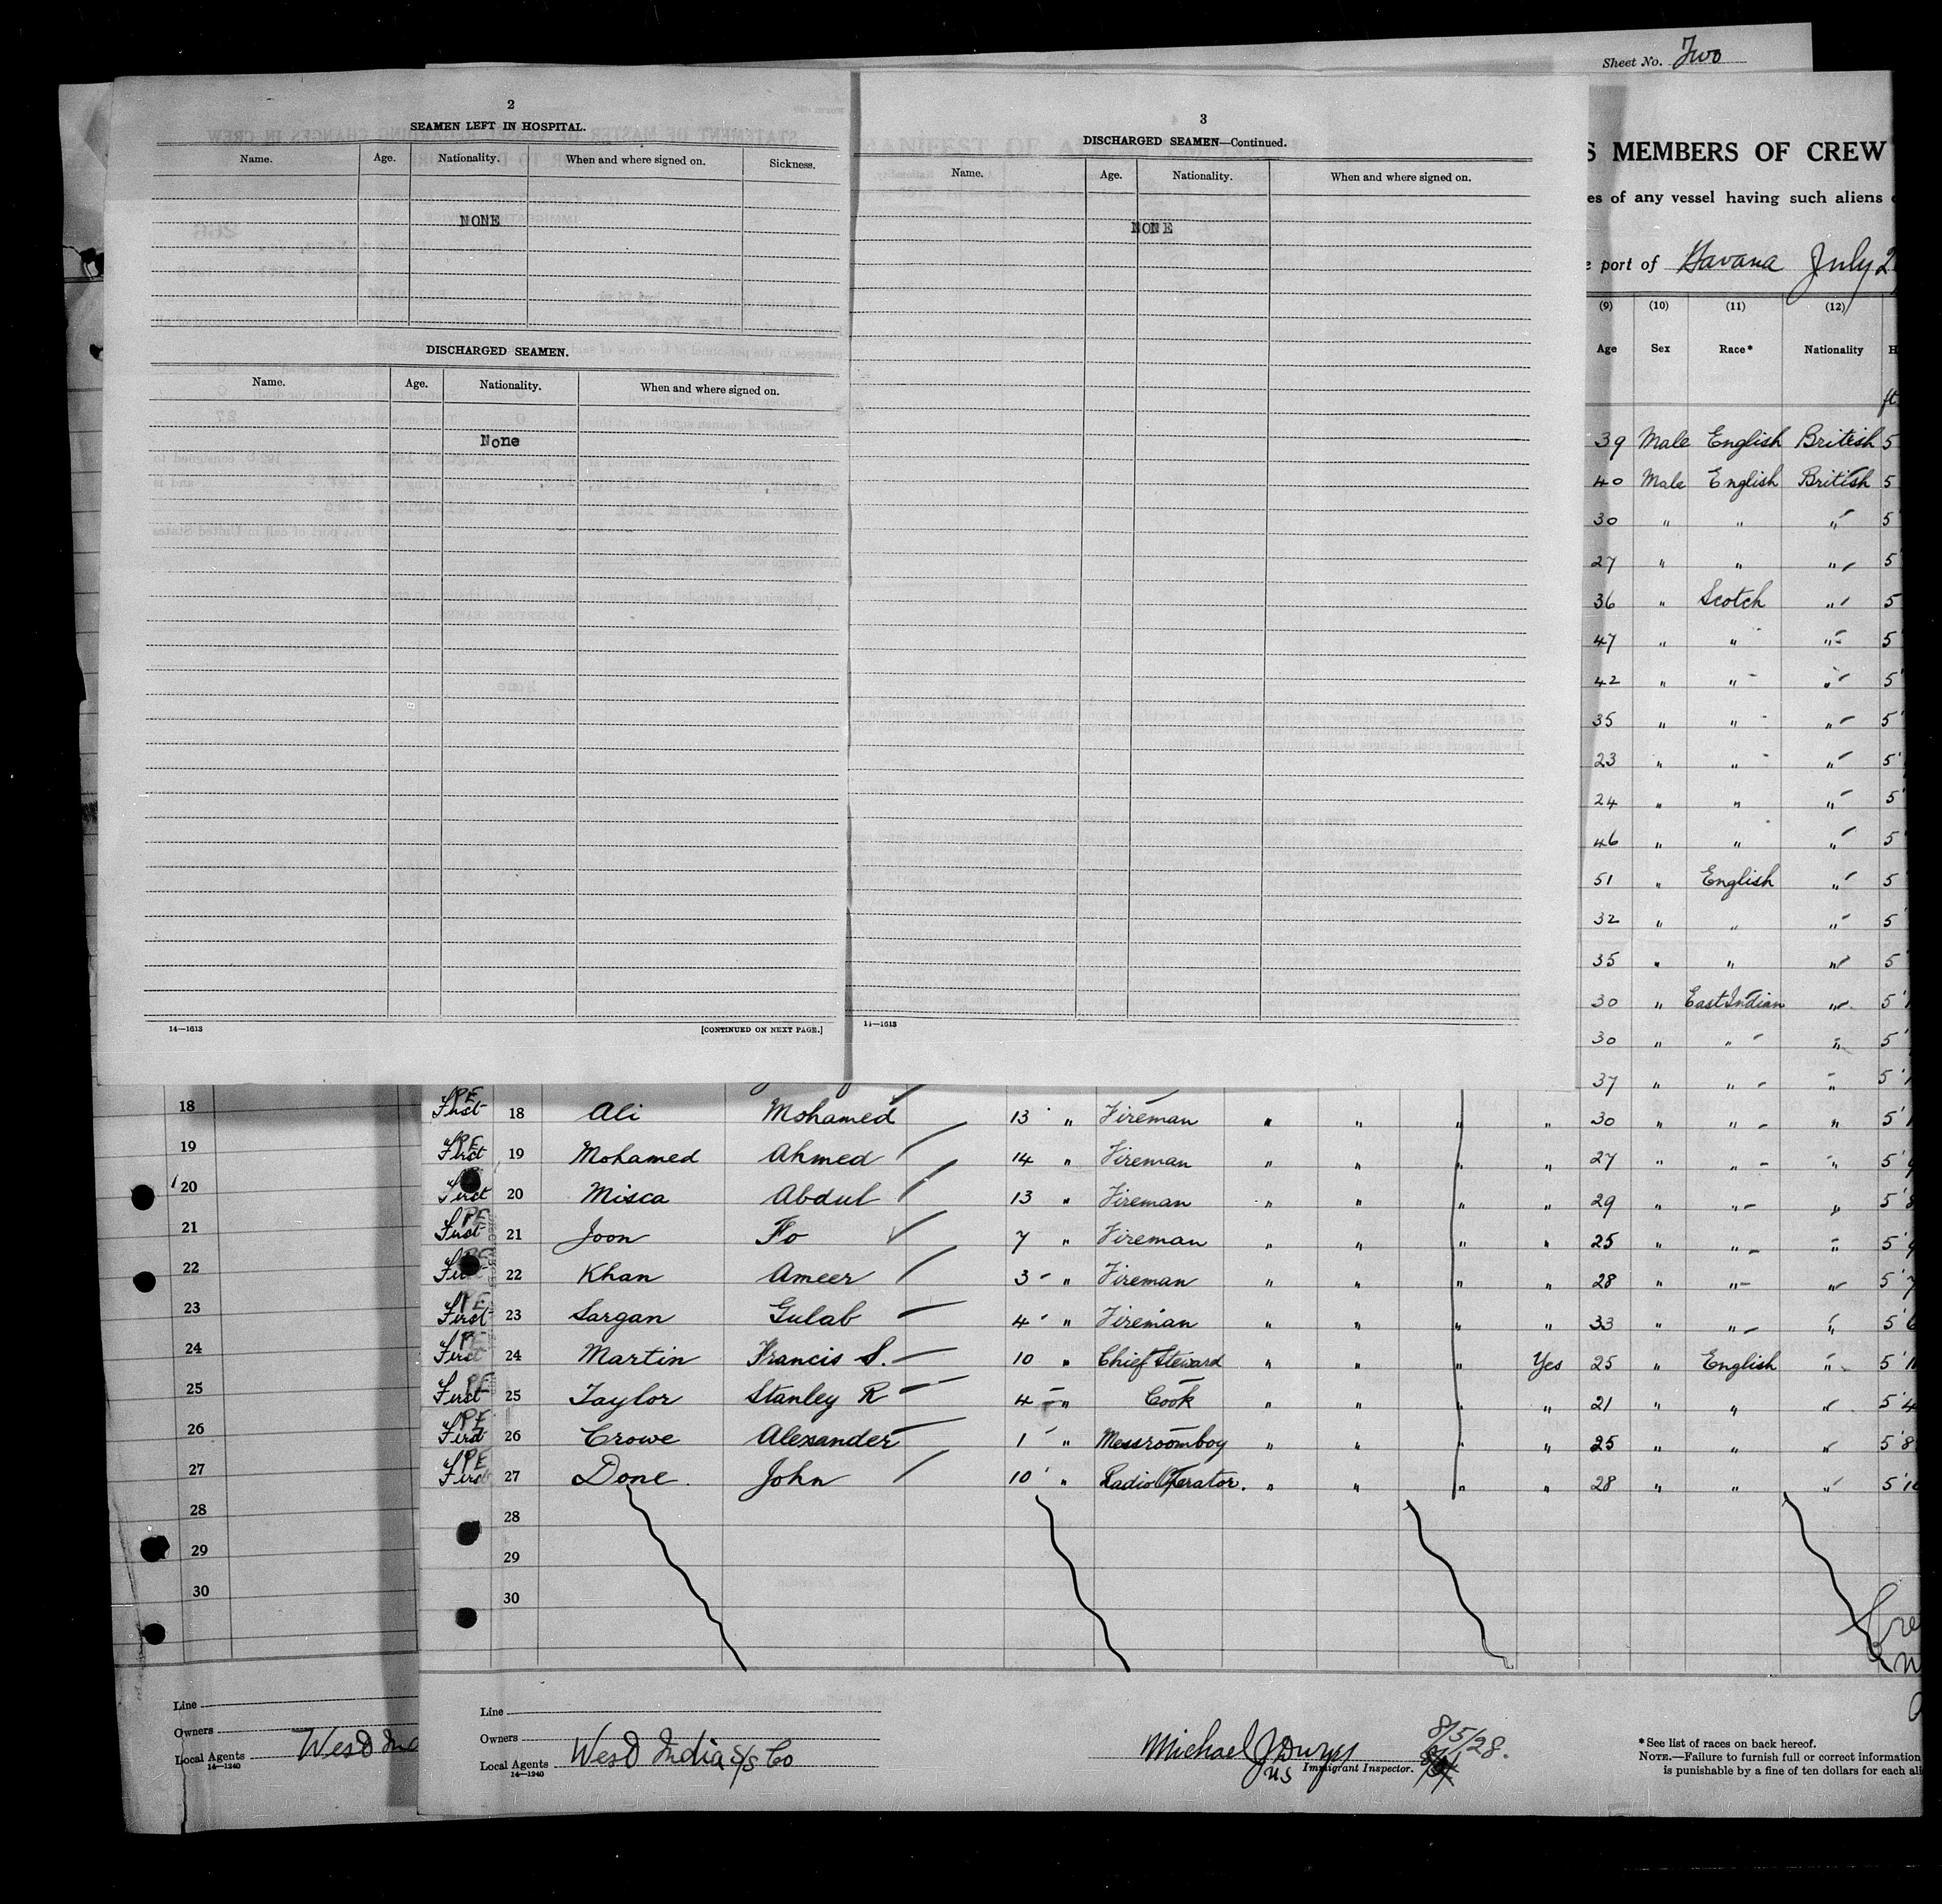 Sheet No. Two
2
SEAMEN LEFT IN HOSPITAL.
Name. Age. Nationality. When and where signed on. Sickness.
NONE
DISCHARGED SEAMEN.
Name. Age. Nationality. When and where signed on.
None
14—1613 [CONTINUED ON NEXT PAGE.]
3
DISCHARGED SEAMEN—Continued.
Name. Age. Nationality. When and where signed on.
NONE
14—1613
S MEMBERS OF CREW
es of any vessel having such aliens
port of Havana July 2
(9) (10) (11) (12)
Age Sex Race* Nationality H
ft
39 Male English British 5
40 Male English British 5
30 " " " 5
27 " " " 5
36 " Scotch " 5
47 " " " 5
42 " " " 5'
35 " " " 5'
23 " " " 5'
24 " " " 5'
46 " " " 5
51 " English " 5
32 " " " 5
35 " " " 5
30 " East Indian " 5'
30 " " " 5'
37 " " " 5'
First PE 18 Ali Mohamed 13 " Fireman " " " " 30 " " " 5'
First PE 19 Mohamed Ahmed 14 " Fireman " " " " 27 " " " 5'
First 20 Misca Abdul 13 " Fireman " " " " 29 " " " 5'8
First PE 21 Joon Fo 7 " Fireman " " " " 25 " " " 5'9
First PE 22 Khan Ameer 3 " Fireman " " " " 28 " " " 5'7
First PE 23 Sargan Gulab 4 " Fireman " " " " 33 " " " 5'6
First PE 24 Martin Francis S. 10 " Chief Steward " " " Yes 25 " English " 5'
First PE 25 Taylor Stanley R 4 " Cook " " " " 21 " " " 5'4
First PE 26 Crowe Alexander 1 " Messroomboy " " " " 25 " " " 5'8
First PE 27 Done John 10 " Radio Operator. " " " " 28 " " " 5'10
28
29
30
Line
Owners
Local Agents West India S/S Co
14—1240
Michael J Dwyer
US Immigrant Inspector.
8/5/28.
*See list of races on back hereof.
NOTE.—Failure to furnish full or correct information
is punishable by a fine of ten dollars for each ali
18
19
20
21
22
23
24
25
26
27
28
29
30
Line
Owners
Local Agents West Ind
14—1240